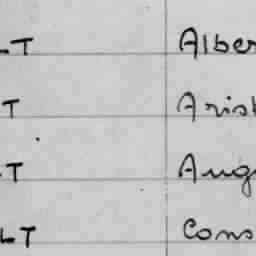 LT Alber
T Arist
T Aug
LT Cons